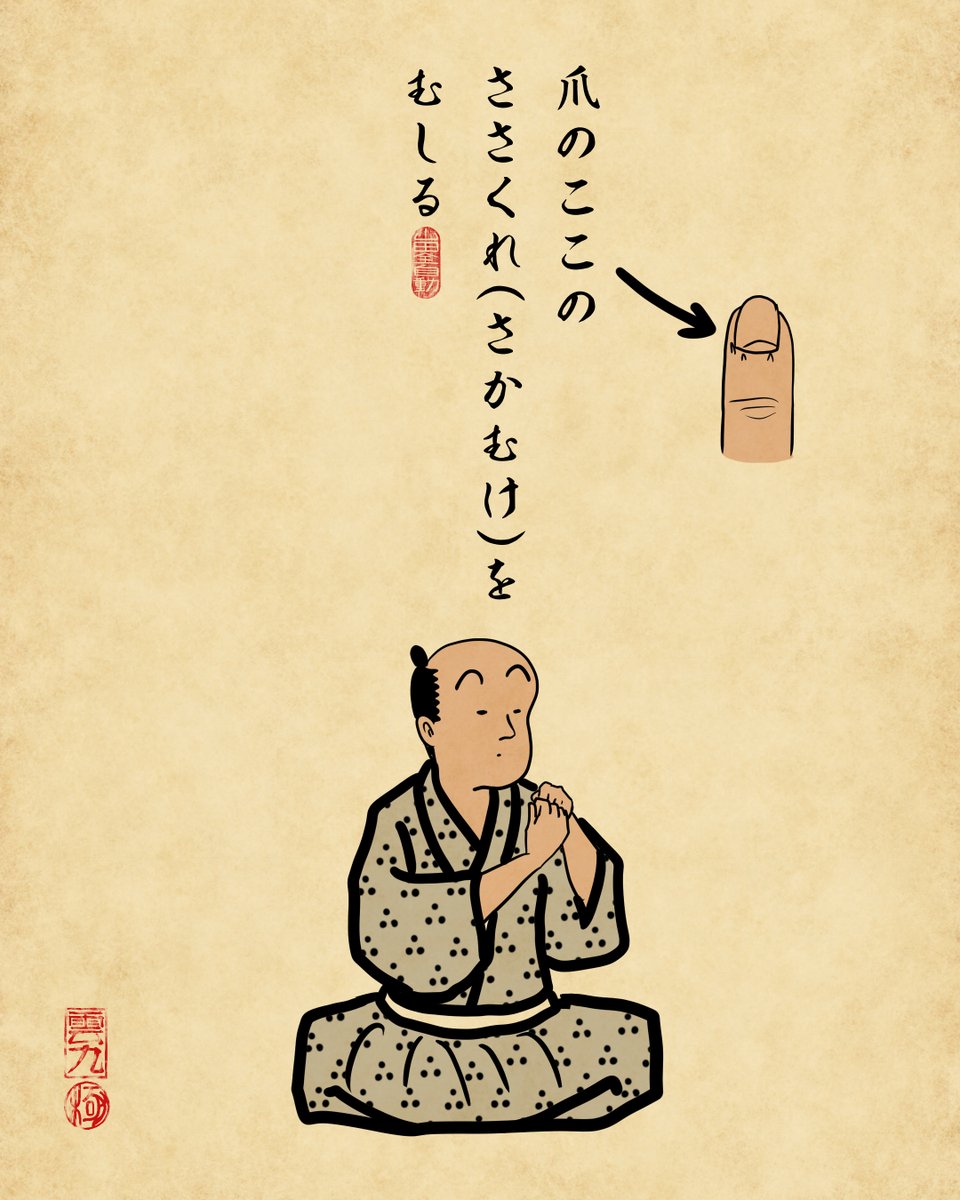 爪のここの
ささくれ(さかむけ)を
むしる
雲九
極